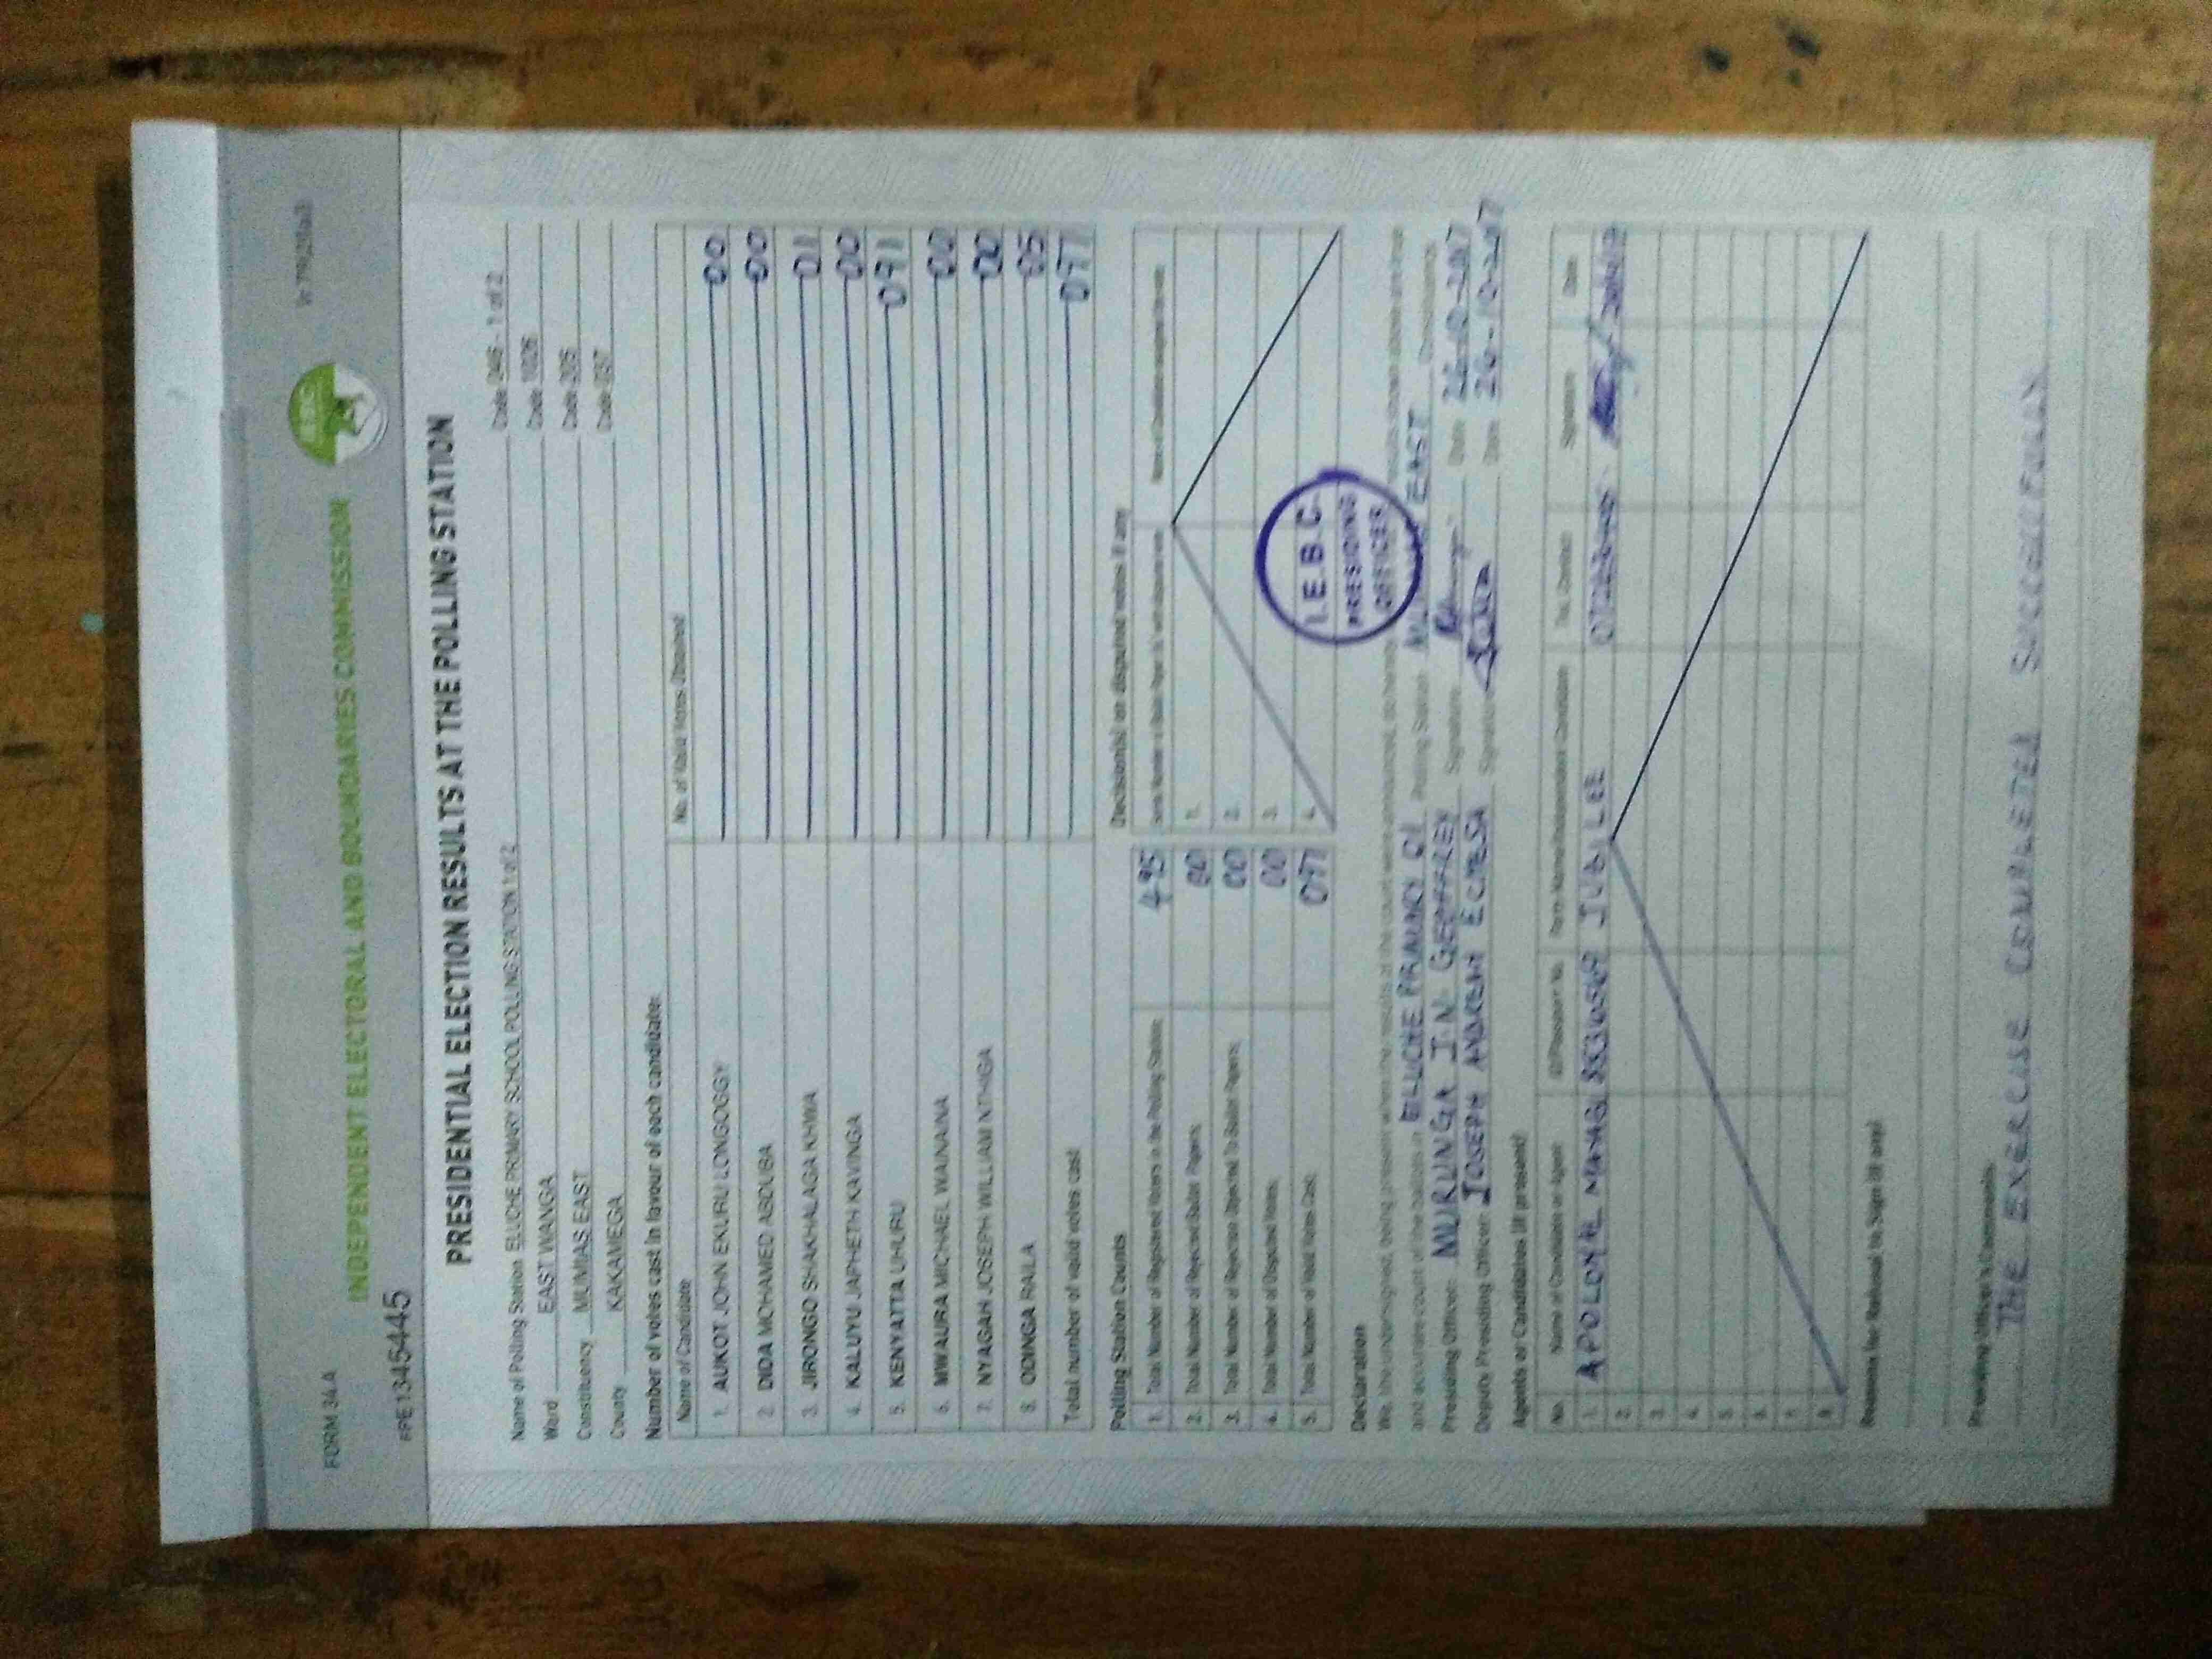 FORM 34A
INDEPENDENT ELECTORAL AND BOUNDARIES COMMISSION
FPE1345445
PRESIDENTIAL ELECTION RESULTS AT THE POLLING STATION
Name of Polling Station ELUCHE PRIMARY SCHOOL POLLING STATION 1 of 2 Code 046 - 1 of 2
Ward EAST WANGA Code 1026
Constituency MUMIAS EAST Code 205
County KAKAMEGA Code 037
Number of votes cast in favour of each candidate:
Name of Candidate No. of Valid Votes Obtained
1. AUKOT JOHN EKURU LONGOGGY 00
2. DIDA MOHAMED ABDUBA 00
3. JIRONGO SHAKHALAGA KHWA 01
4. KALUYU JAPHETH KAVINGA 00
5. KENYATTA UHURU 091
6. MWAURA MICHAEL WAINAINA 00
7. NYAGAH JOSEPH WILLIAM NTHIGA 00
8. ODINGA RAILA 05
Total number of valid votes cast 097
Polling Station Counts
1. Total Number of Registered Voters in the Polling Station 495
2. Total Number of Rejected Ballot Papers 00
3. Total Number of Rejection Objected To Ballot Papers 00
4. Total Number of Disputed Votes 00
5. Total Number of Valid Votes Cast 097
Decision(s) on disputed votes if any
1.
2.
3.
4.
I.E.B.C.
PRESIDING
OFFICER
Declaration
We, the undersigned, being present when the results of the count were announced, do hereby
and accurate count of the ballots in ELUCHE PRIMARY 01 Polling Station EAST Constituency
Presiding Officer: MURUNGA J.N. GEOFFREY Signature Date 26-10-2017
Deputy Presiding Officer: JOSEPH ANDREW ECHESA Signature Date 26-10-2017
Agents or Candidates (if present)
No. Name of Candidate or Agent ID/Passport No. Party Name/Independent Candidate Tel. Contact Signature Date
1. JUBILEE
2.
3.
4.
5.
6.
7.
8.
Reasons for Refusal to Sign (if any)
Presiding Officer's Comments
THE EXERCISE COMPLETED SUCCESSFULLY